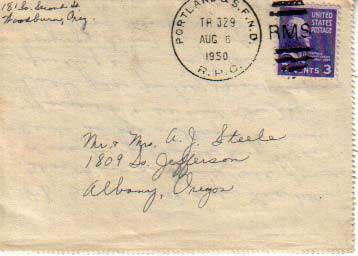 181 So. Second St.
Woodburn, Oreg
PORTLAND & S.F. N.D.
TR 329
AUG 6
1950
R.P.O.
RMS
UNITED
STATES
POSTAGE
CENTS 3
Mr. & Mrs. A. J. Steele
1809 So. Jefferson
Albany, Oregon